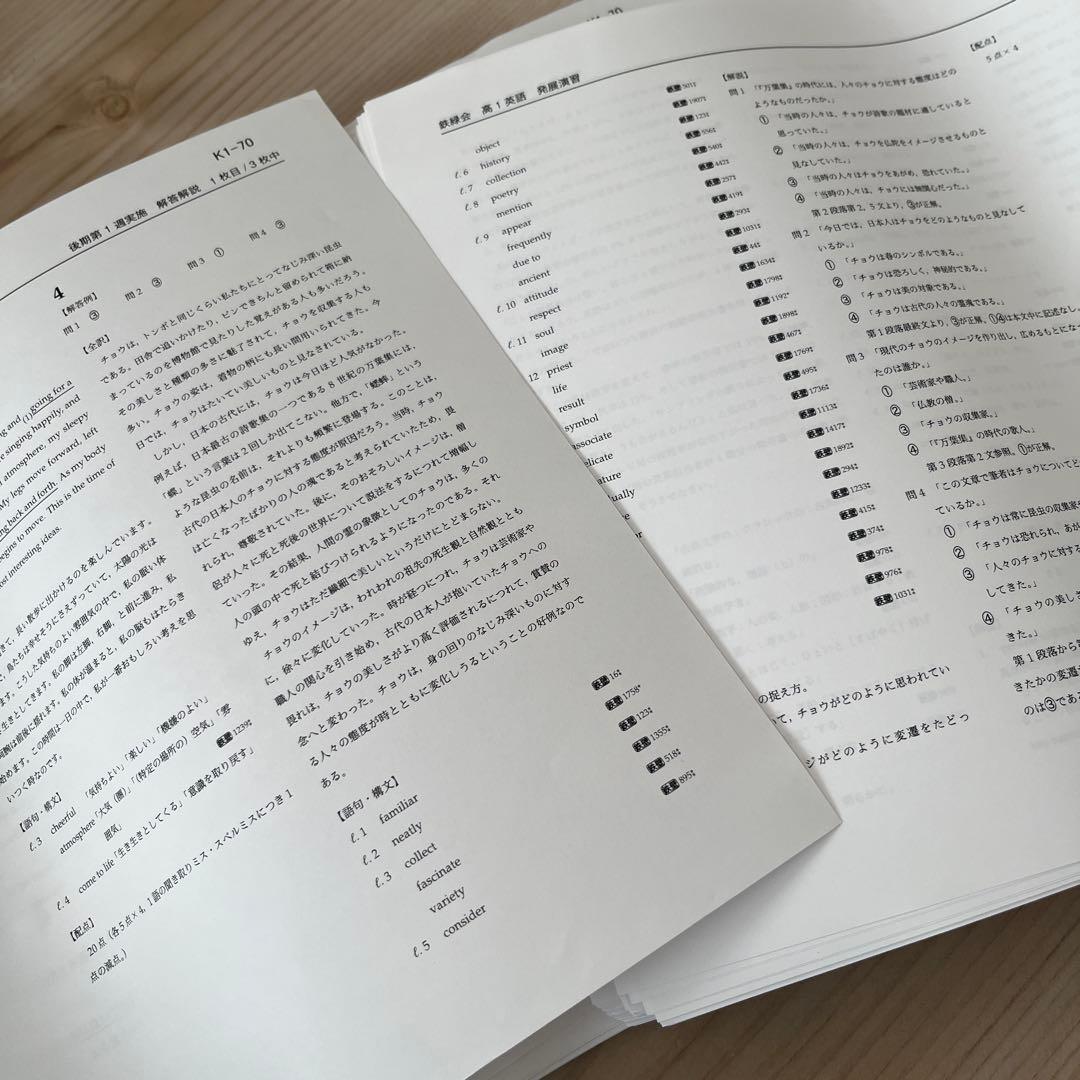 K1-70
後期第1週実施 解答解説 1枚目/3枚中
going and (1)going for a
e singing happily, and
l atmosphere, my sleepy
My legs move forward, left
ng back and forth. As my body
begins to move. This is the time of
ost interesting ideas.
きて、長い散歩に出かけるのを楽しんでいます。
で、鳥たちは幸せそうにさえずっていて、太陽の光は
ます。こうした気持ちのよい雰囲気の中で、私の眠い体
き生きとしてきます。私の脚は左脚、右脚、と前に進み、私
両腕は前後に揺れます。私の体が温まると、私の脳もはたらき
始めます。この時間は一日の中で、私が一番おもしろい考えを思
いつく時なのです。
【語句・構文】
ℓ.3 cheerful 「気持ちよい」「楽しい」「機嫌のよい」
atmosphere「大気(圏)」「(特定の場所の)空気」「雰
囲気」 鉄壁1239‡
ℓ.4 come to life「生き生きとしてくる」「意識を取り戻す」
【配点】
20点(各5点×4, 1語の聞き取りミス・スペルミスにつき1
点の減点。)
4
【解答例】
問1 ③ 問2 ③ 問3 ① 問4 ③
【全訳】
チョウは、トンボと同じくらい私たちにとってなじみ深い昆虫
である。田舎で追いかけたり、ピンできちんと留められて箱に納
まっているのを博物館で見たりした覚えがある人も多いだろう。
その美しさと種類の多さに魅了されて、チョウを収集する人も
多い。チョウの姿は、着物の柄にも長い間用いられてきた。今
日では、チョウはたいてい美しいものと見なされている。
しかし、日本の古代には、チョウは今日ほど人気がなかった。
例えば、日本最古の詩歌集の一つである8世紀の万葉集には、
「蝶」という言葉は2回しか出てこない。他方で、「蟋蟀」という
ような昆虫の名前は、それよりも頻繁に登場する。このことは、
古代の日本人のチョウに対する態度が原因だろう。当時、チョウ
は亡くなったばかりの人の魂であると考えられていたため、畏
れられ、尊敬されていた。後に、そのおそろしいイメージは、僧
侶が人々に死と死後の世界について説法をするにつれて増幅し
ていった。その結果、人間の霊の象徴としてのチョウは、多くの
人の頭の中で死と結びつけられるようになったのである。それ
ゆえ、チョウはただ繊細で美しいというだけにとどまらない。
チョウのイメージは、われわれの祖先の死生観と自然観ととも
に、徐々に変化していった。時が経つにつれ、チョウは芸術家や
職人の関心を引き始め、古代の日本人が抱いていたチョウへの
畏れは、チョウの美しさがより高く評価されるにつれて、賞賛の
念へと変わった。チョウは、身の回りのなじみ深いものに対す
る人々の態度が時とともに変化しうるということの好例なので
ある。
【語句・構文】
ℓ.1 familiar 鉄壁16‡
ℓ.2 neatly 鉄壁1758*
ℓ.3 collect 鉄壁123‡
fascinate 鉄壁1355‡
variety 鉄壁518‡
ℓ.5 consider 鉄壁895‡
K1-70
鉄緑会 高1英語 発展演習
object 鉄壁501‡
ℓ.6 history 鉄壁1907‡
ℓ.7 collection 鉄壁123‡
ℓ.8 poetry 鉄壁556‡
mention 鉄壁540‡
ℓ.9 appear 鉄壁442‡
frequently 鉄壁257‡
due to 鉄壁419‡
ancient 鉄壁293‡
ℓ.10 attitude 鉄壁1031‡
respect 鉄壁44‡
ℓ.11 soul 鉄壁1634‡
image 鉄壁1798‡
12 priest 鉄壁1192*
life 鉄壁1898‡
result 鉄壁467‡
symbol 鉄壁1769‡
associate 鉄壁495‡
elicate 鉄壁1736‡
ature 鉄壁1113‡
ually 鉄壁1417‡
鉄壁1892‡
鉄壁294‡
鉄壁1233‡
鉄壁415‡
鉄壁374‡
鉄壁978‡
鉄壁976‡
鉄壁1031‡
の捉え方。
って、チョウがどのように思われてい
ジがどのように変遷をたどっ
【解説】
問1 「『万葉集』の時代には、人々のチョウに対する態度はどの
ようなものだったか。」
① 「当時の人々は、チョウが詩歌の題材に適していると
思っていた。」
② 「当時の人々は、チョウを仏陀をイメージさせるものと
見なしていた。」
③ 「当時の人々はチョウをあがめ、恐れていた。」
④ 「当時の人々は、チョウには無関心だった。」
第2段落第2, 5文より、③が正解。
問2 「今日では、日本人はチョウをどのようなものと見なして
いるか。」
① 「チョウは春のシンボルである。」
② 「チョウは恐ろしく、神秘的である。」
③ 「チョウは美の対象である。」
④ 「チョウは古代の人々の霊魂である。」
第1段落最終文より、③が正解。①④は本文中に記述なし。
問3 「現代のチョウのイメージを作り出し、広めるもとになっ
たのは誰か。」
① 「芸術家や職人。」
② 「仏教の僧。」
③ 「チョウの収集家。」
④ 「『万葉集』の時代の歌人。」
第3段落第2文参照。①が正解。
問4 「この文章で筆者はチョウについてど
ているか。」
① 「チョウは常に昆虫の収集家
② 「チョウは恐れられ、あが
③ 「人々のチョウに対する
してきた。」
④ 「チョウの美しさ
きた。」
第1段落から
きたかの変遷
のは③であ
【配点】
5点×4